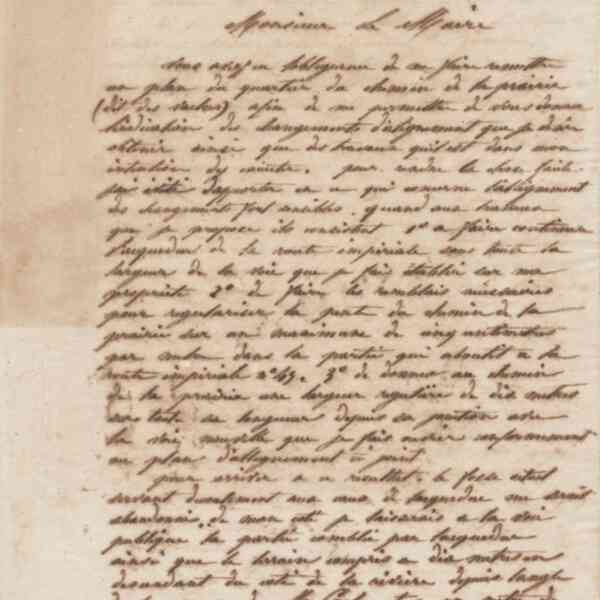 Monsieur Le Maire
vous avez eu l'obligeance de me faire remettre
un plan du quartier du chemin de la prairie
(dit des ) afin de me permettre de vous donner
l'indication des changements d'alignement que je désire
obtenir ainsi que des travaux qu'il est dans mon
intention de . pour rendre la chose facile
j'ai évité d'apporter en ce qui concerne l'alignement
des changements fort sensibles. quand aux travaux
que je propose ils consistent 1° a faire continuer
l'acqueduc de la route impériale sous toute la
largeur de la voie que je fais établir sur ma
propriété 2° de faire les remblais nécessaires
pour regulariser la pente du chemin de la
prairie sur un maximum de cinq centimètres
par mètre dans la partie qui aboutit a la
route impériale n° . 3° de donner au chemin
de la prairie une largeur regulière de dix mètres
sur toute sa longueur depuis sa  avec
la voie nouvelle que je fais ouvrir conformement
au plan d'allignement ci joint
pour arriver a ce résultat, le fossé 
servant  aux eaux de l'acqueduc me serait
abandonné, de mon coté je laisserais a la voie
publique la partie comblée par l'acqueduc
ainsi que le terrain compris a dix mètres en
descendant du coté de la rivière depuis l'angle